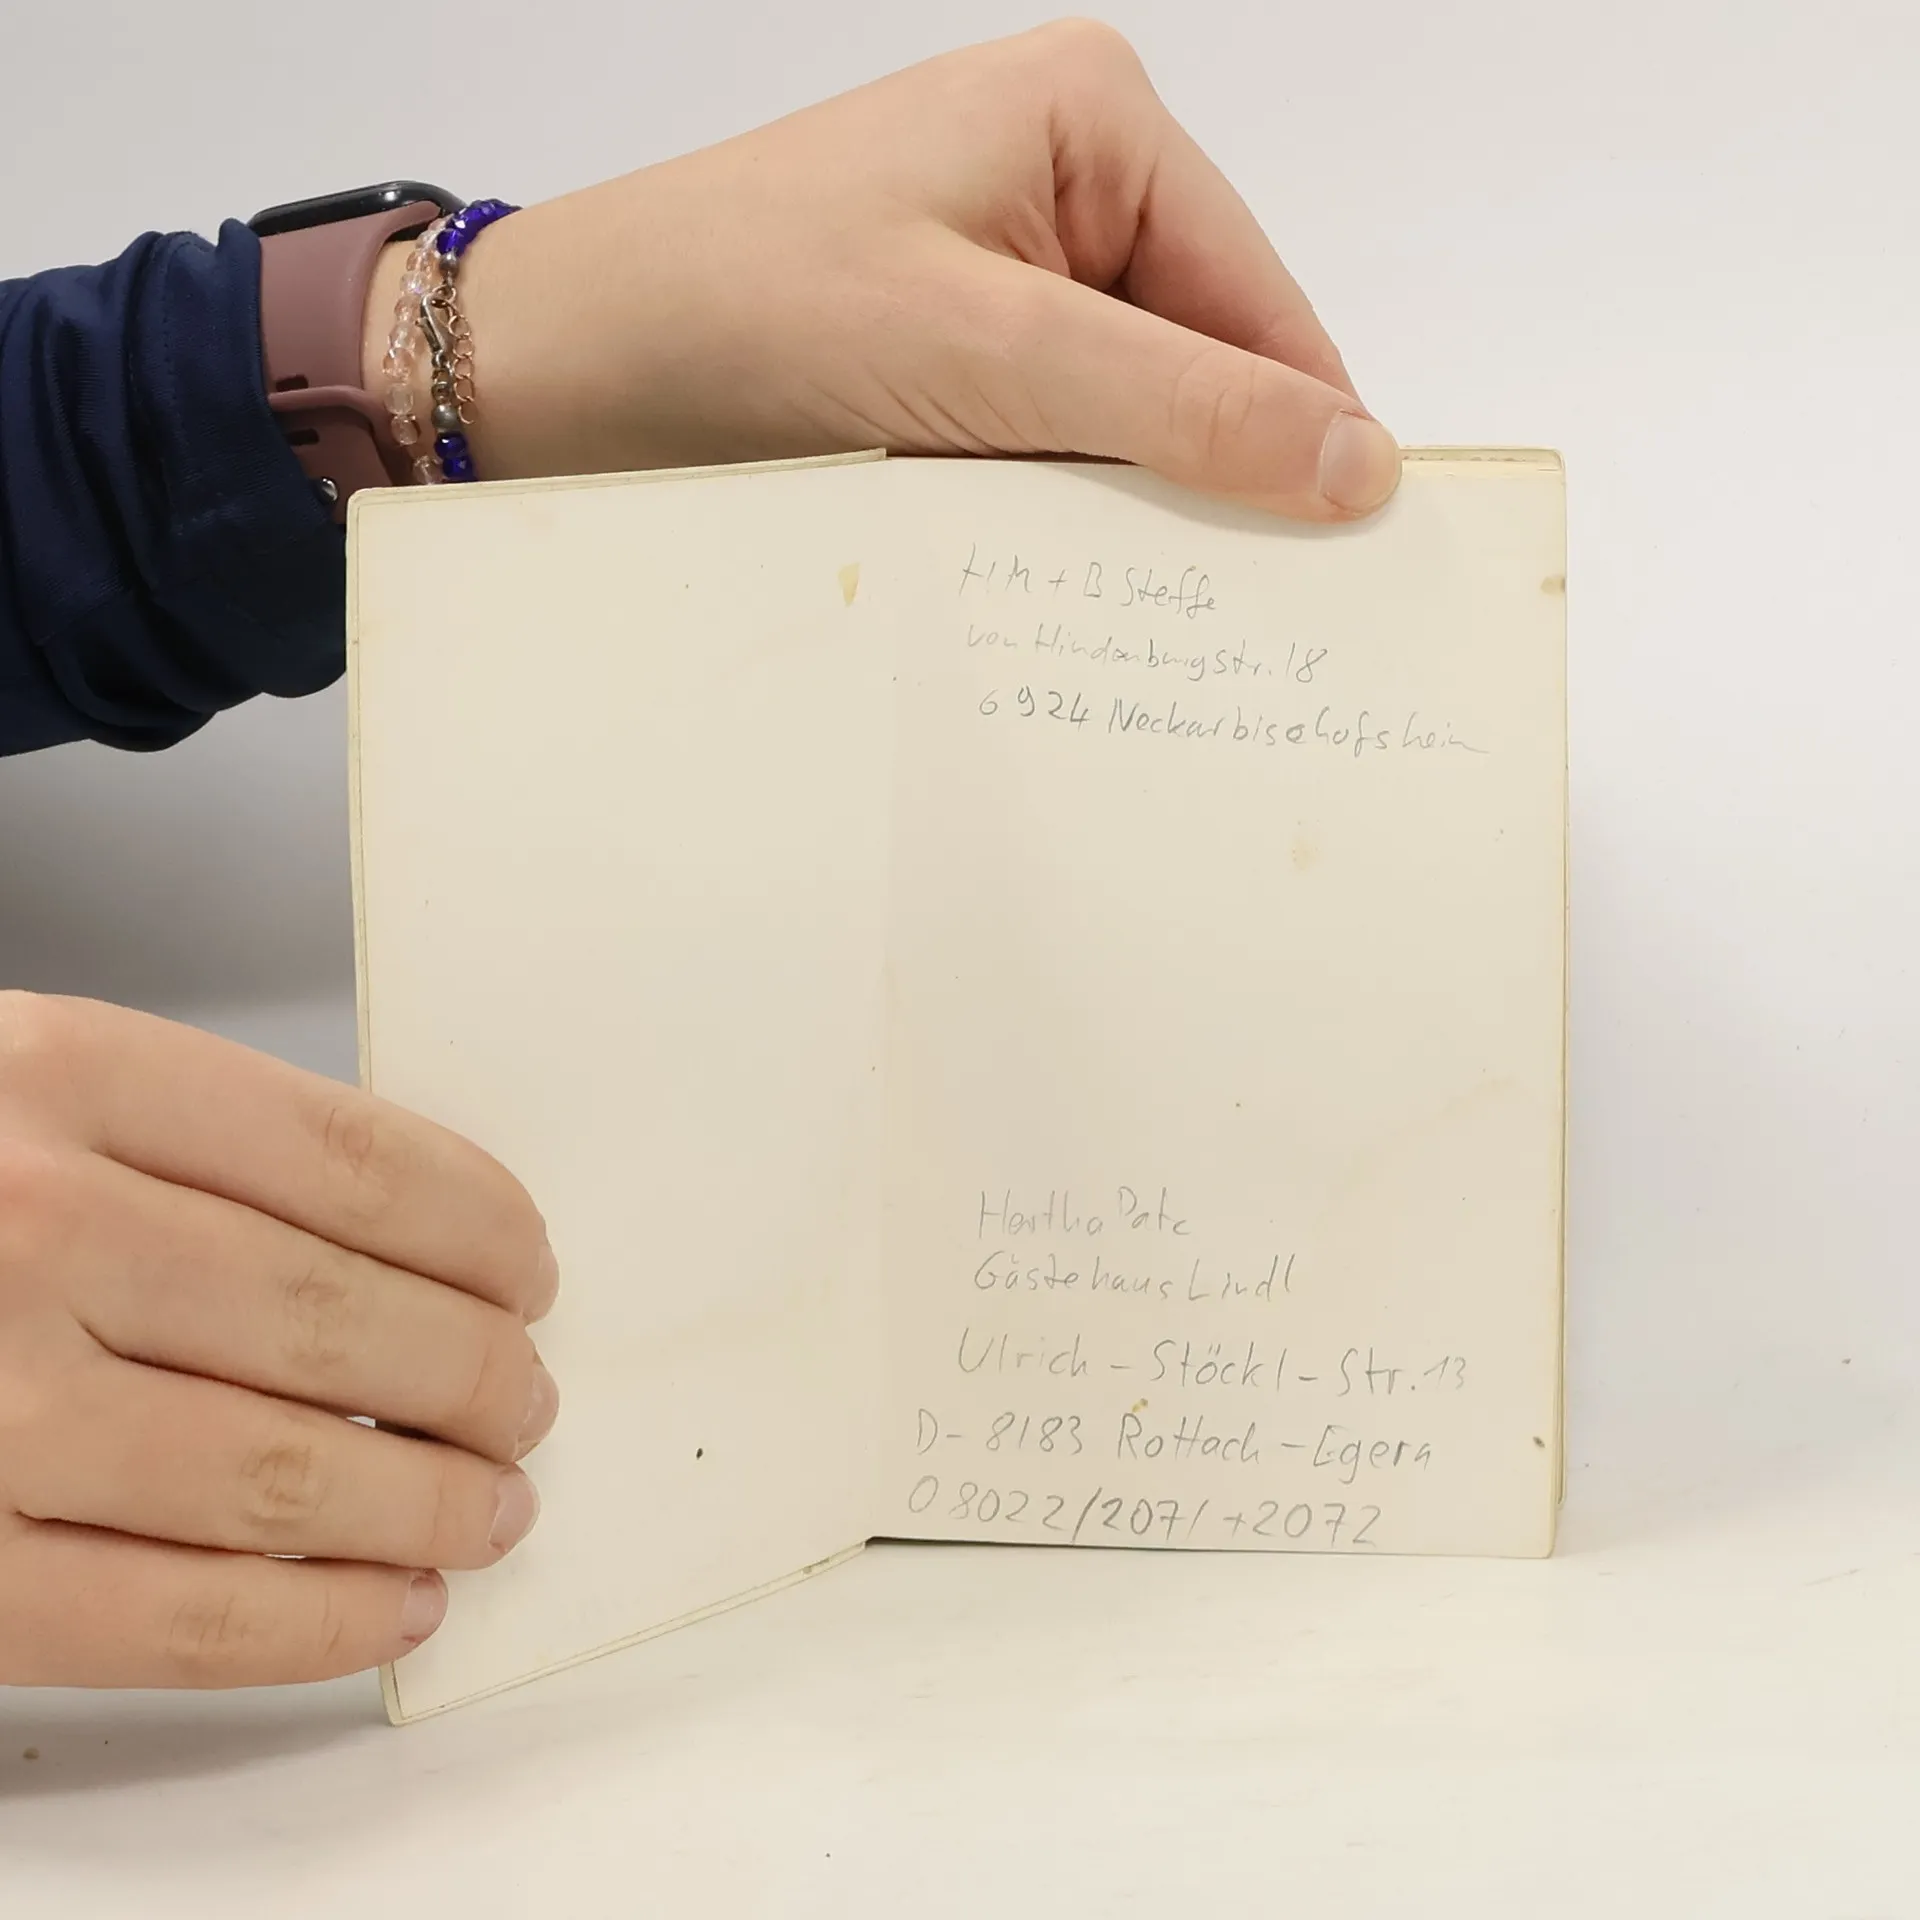 HM + B Steffe
von Hindenburgstr. 18
6924 Neckarbischofsheim
Hertha
Gästehaus Lindl
Ulrich - Stöckl - Str. 13
D - 8183 Rottach - Egern
08022/2071 + 2072